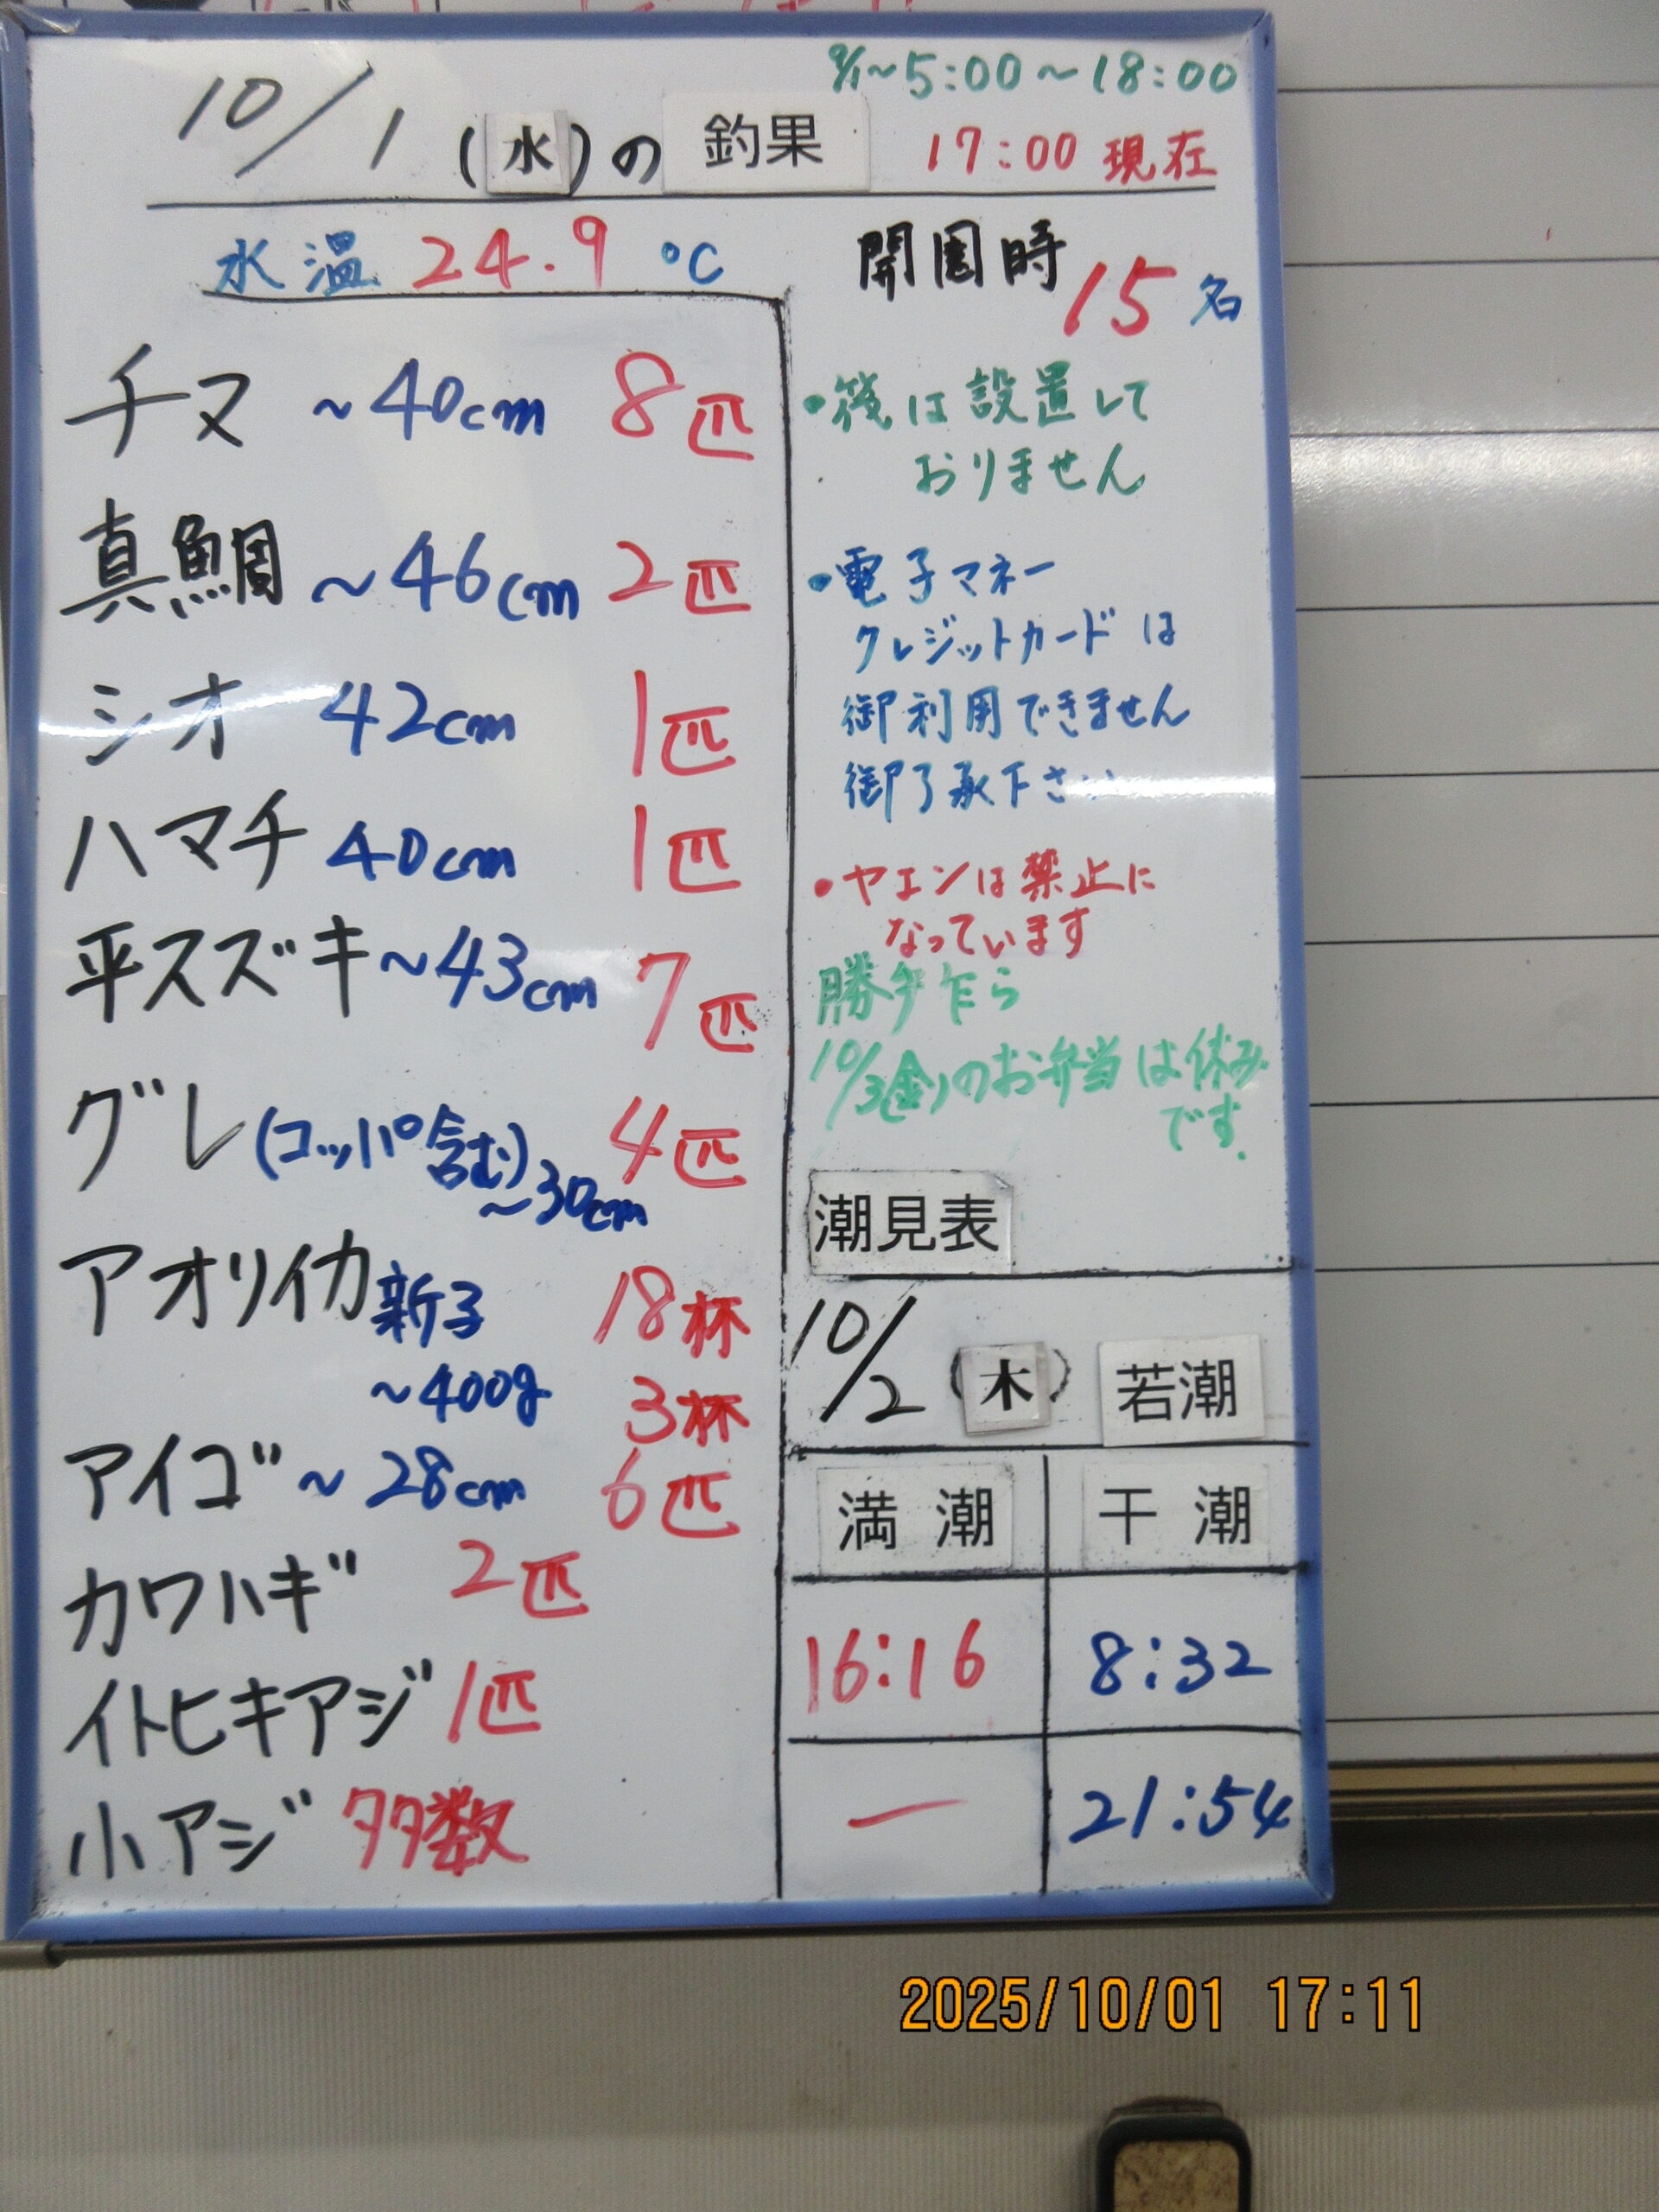 9/1～5:00～18:00
10/1(水)の釣果
17:00現在
水温 24.9 ℃
開園時 15名
チヌ ～40cm 8匹
真鯛 ～46cm 2匹
シオ 42cm 1匹
ハマチ 40cm 1匹
平スズキ ～43cm 7匹
グレ(コッパ含む) ～30cm 4匹
アオリイカ 新子 18杯
～400g 3杯
アイゴ ～28cm 6匹
カワハギ 2匹
イトヒキアジ 1匹
小アジ 多数
・筏は設置して
おりません
・電子マネー
クレジットカードは
御利用できません
御了承下さい
・ヤエンは禁止に
なっています
勝手乍ら
10/3(金)のお弁当は休み
です.
潮見表
10/2(木) 若潮
満潮 干潮
16:16 8:32
— 21:54
2025/10/01 17:11